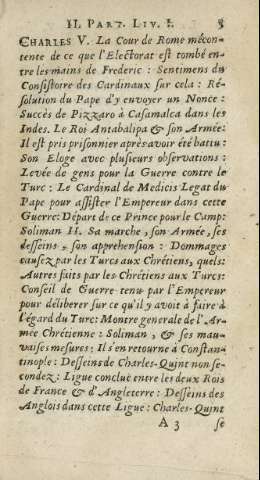 II. PART. LIV. I. 5
CHARLES V. La Cour de Rome mécon-
tente de ce que l'Electorat est tombé en-
tre les mains de Frederic : Sentimens du
Consistoire des Cardinaux sur cela : Ré-
solution du Pape d'y envoyer un Nonce :
Succès de Pizzaro à Casamalca dans les
Indes. Le Roi Antabalipa & son Armée :
Il est pris prisonnier après avoir été battu :
Son Eloge avec plusieurs observations :
Levée de gens pour la Guerre contre le
Turc : Le Cardinal de Medicis Legat du
Pape pour assister l'Empereur dans cette
Guerre : Départ de ce Prince pour le Camp :
Soliman II. Sa marche, son Armée, ses
desseins, son apprehension : Dommages
causez par les Turcs aux Chrétiens, quels :
Autres faits par les Chrétiens aux Turcs :
Conseil de Guerre tenu par l'Empereur
pour déliberer sur ce qu'il y avoit à faire à
l'égard du Turc : Montre generale de l'Ar-
mée Chrétienne : Soliman, & ses mau-
vaises mesures : Il s'en retourne à Constan-
tinople : Desseins de Charles-Quint non se-
condez : Ligue concluë entre les deux Rois
de France & d'Angleterre : Desseins des
Anglois dans cette Ligue : Charles-Quint
A 3 se